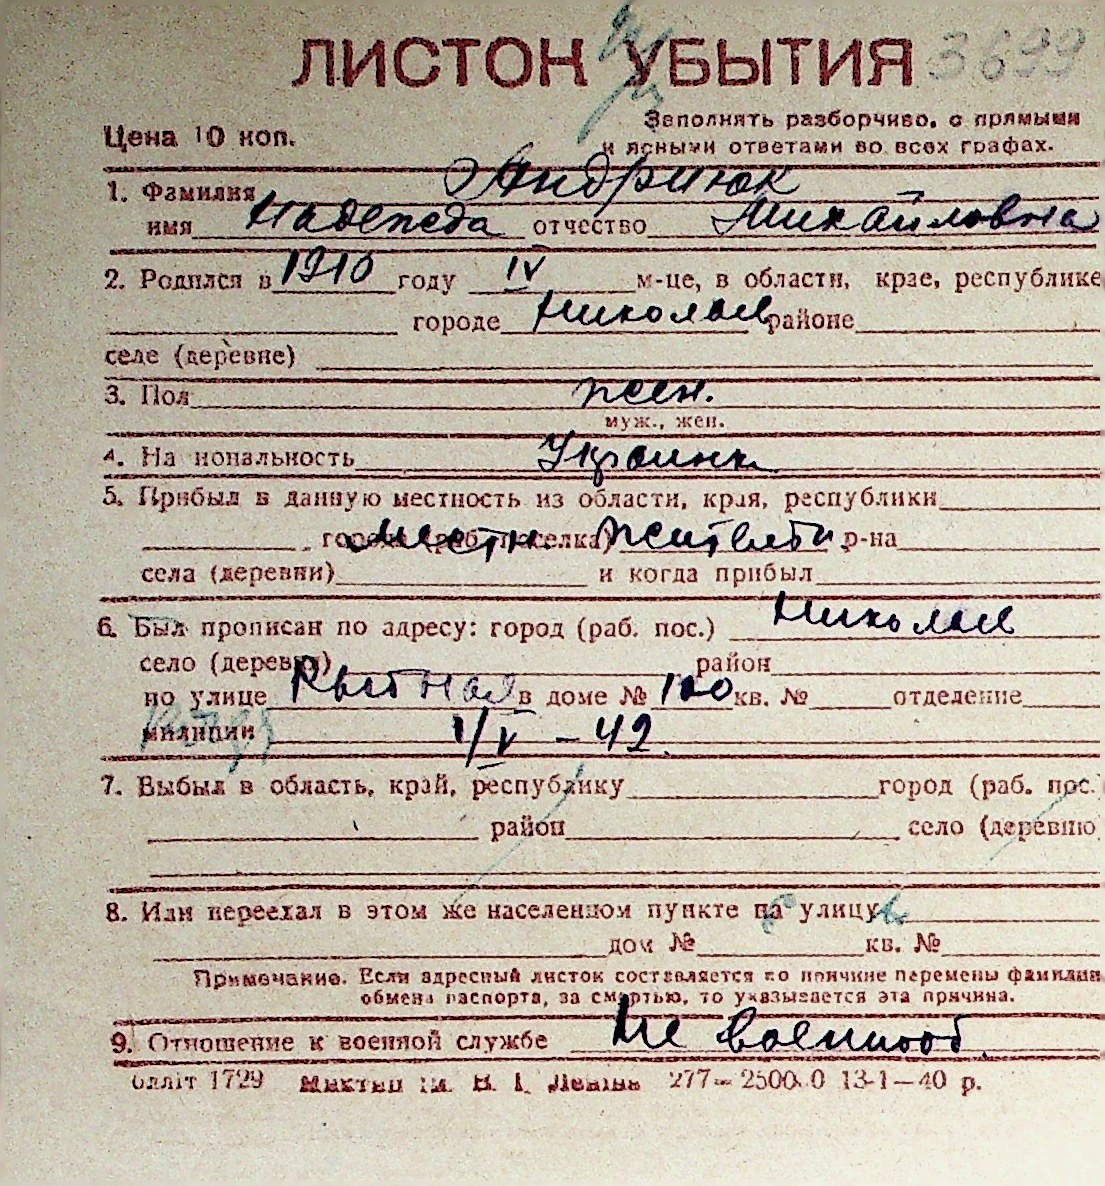 ЛИСТОК УБЫТИЯ 3699
Цена 10 коп.
Заполнять разборчиво, с прямыми
и ясными ответами во всех графах.
1. Фамилия Андриюк
имя Надежда отчество Михайловна
2. Родился в 1910 году IV м-це, в области, крае, республике
городе Николаев районе
селе (деревне)
3. Пол жен.
муж., жен.
4. На нональность Украинк
5. Прибыл в данную местность из области, края, республики
города (раб. поселка) местн. р-на
села (деревни) и когда прибыл
6. Был прописан по адресу: город (раб. пос.) Николаев
село (деревню) район
по улице Рыбная в доме № 100 кв. № отделение
милиции 1/V - 42.
7. Выбыл в область, край, республику город (раб. пос.)
район село (деревню
8. Или переехал в этом же населенном пункте на улицу
дом № кв. №
Примечание. Если адресный листок составляется по причине перемены фамилии
обмена паспорта, за смертью, то указывается эта причина.
9. Отношение к военной службе Не военнооб.
1729 277— 13-1—40 р.